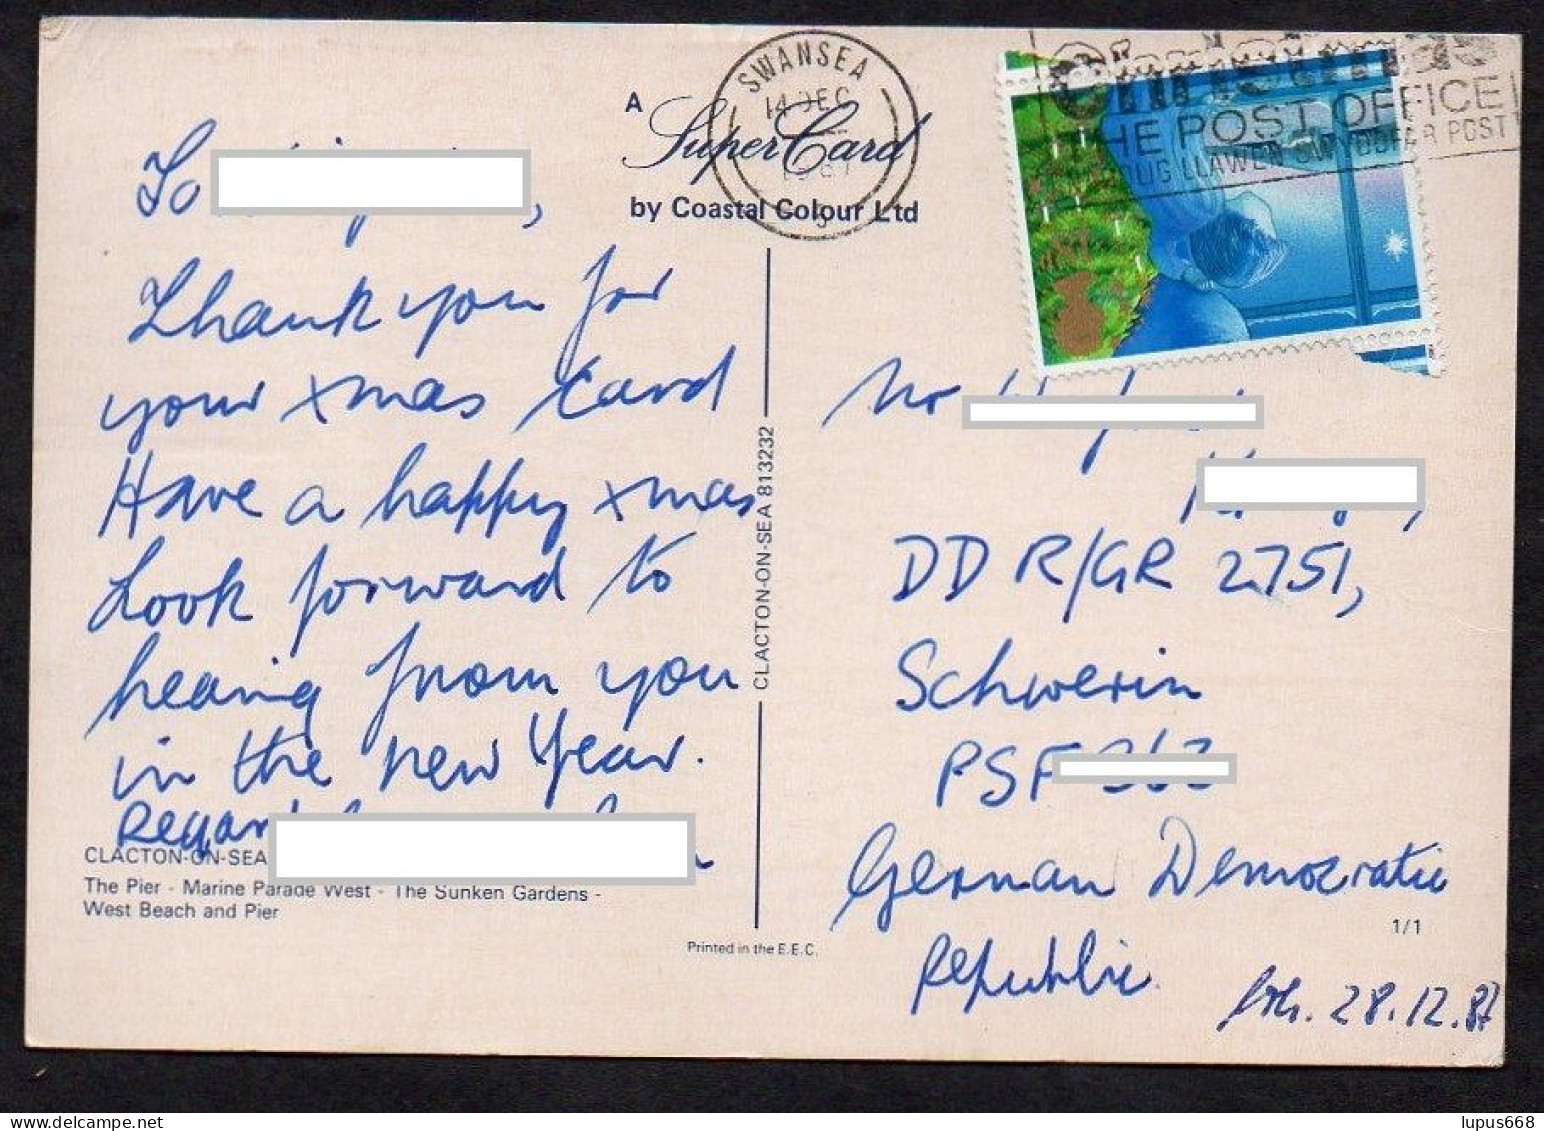 A
SuperCard
by Coastal Colour Ltd
SWANSEA
14 DEC
Christmas
THE POST OFFICE
LLAWEN POST
To ,
Thank you for
your xmas card
Have a happy xmas
Look forward to
hearing from you
in the new Year.
Regar
CLACTON-ON-SEA
The Pier - Marine Parade West - The Sunken Gardens -
West Beach and Pier
CLACTON-ON-SEA 813232
Printed in the E.E.C.
Mr
DDR/GR 2751,
Schwerin
PSF
German Democratic
Republic
1/1
28.12.87
lupus668